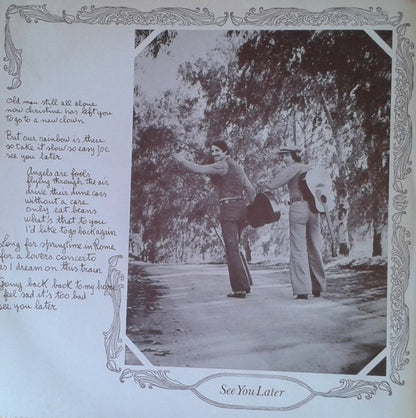 Old man still all alone
now christine has left you
to go to a new clown
But our rainbow is there
so take it slow so easy Joe
see you later
Angels are fools
flying through the air
drive their dime cars
without a care
only eat beans
what's that to you
I'd like to go back again
Long for springtime in Rome
for a lovers concerto
as I dream on this train
Going back back to my home
feel sad it's too bad
see you later
See You Later